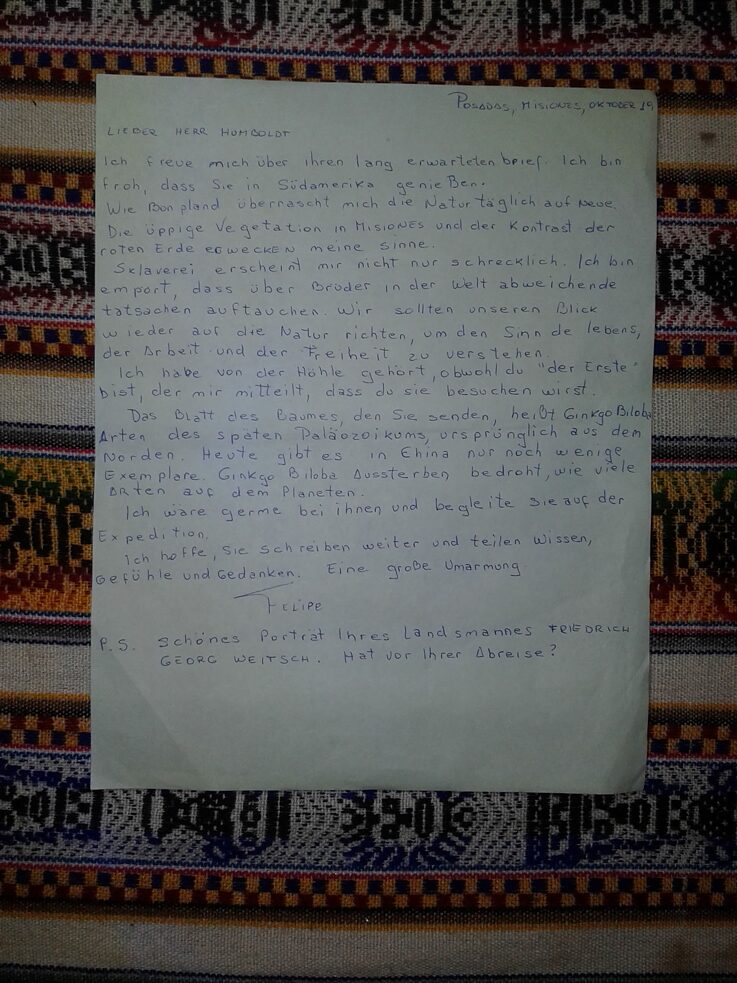 POSADAS, MISIONES, OKTOBER 19
LIEBER HERR HUMBOLDT
Ich freue mich über ihren lang erwarteten brief. Ich bin
froh, dass Sie in Südamerika genieBen.
Wie Bonpland überrascht mich die Natur täglich auf Neue.
Die üppige Vegetation in MISIONES und der Kontrast der
roten Erde erwecken meine sinne.
Sklaverei erscheint mir nicht nur schrecklich. Ich bin
emport, dass über Bruder in der Welt abweichende
tatsachen auftauchen. Wir sollten unseren Blick
wieder auf die Natur richten, um den Sinn de lebens,
der Arbeit und der Freiheit zu verstehen.
Ich habe von der Höhle gehört, obwohl du "der Erste"
bist, der mir mitteilt, dass du sie besuchen wirst.
Das Blatt des Baumes, den Sie senden, heißt Ginkgo Biloba
Arten des späten Paläozoikums, ursprünglich aus dem
Norden. Heute gibt es in China nur noch wenige
Exemplare. Ginkgo Biloba Aussterben bedroht, wie viele
Arten auf dem Planeten.
Ich ware germe bei ihnen und begleite sie auf der
Expedition.
Ich hoffe, Sie schreiben weiter und teilen Wissen,
Gefühle und Gedanken. Eine große Umarmung
FELIPE
P.S. Schönes Porträt Ihres Landsmannes FRIEDRICH
GEORG WEITSCH. Hat vor Ihrer Abreise?